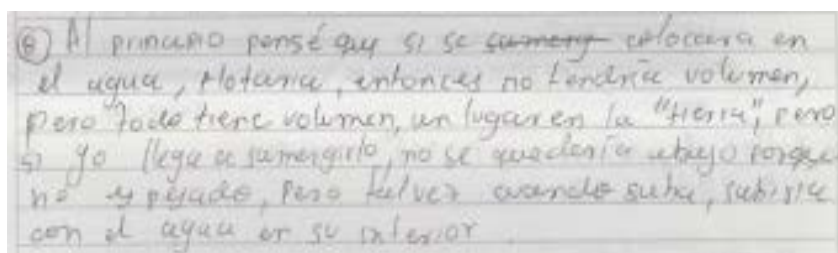 ⑧ Al principio pensé que si se sumerg colocara en
el agua, flotaria, entonces no tendría volumen,
pero todo tiene volumen, un lugar en la "tierra", pero
si yo llega a sumergirlo, no se quedaría abajo porque
no es pesado, Pero talvez cuando suba, subiria
con el agua en su interior